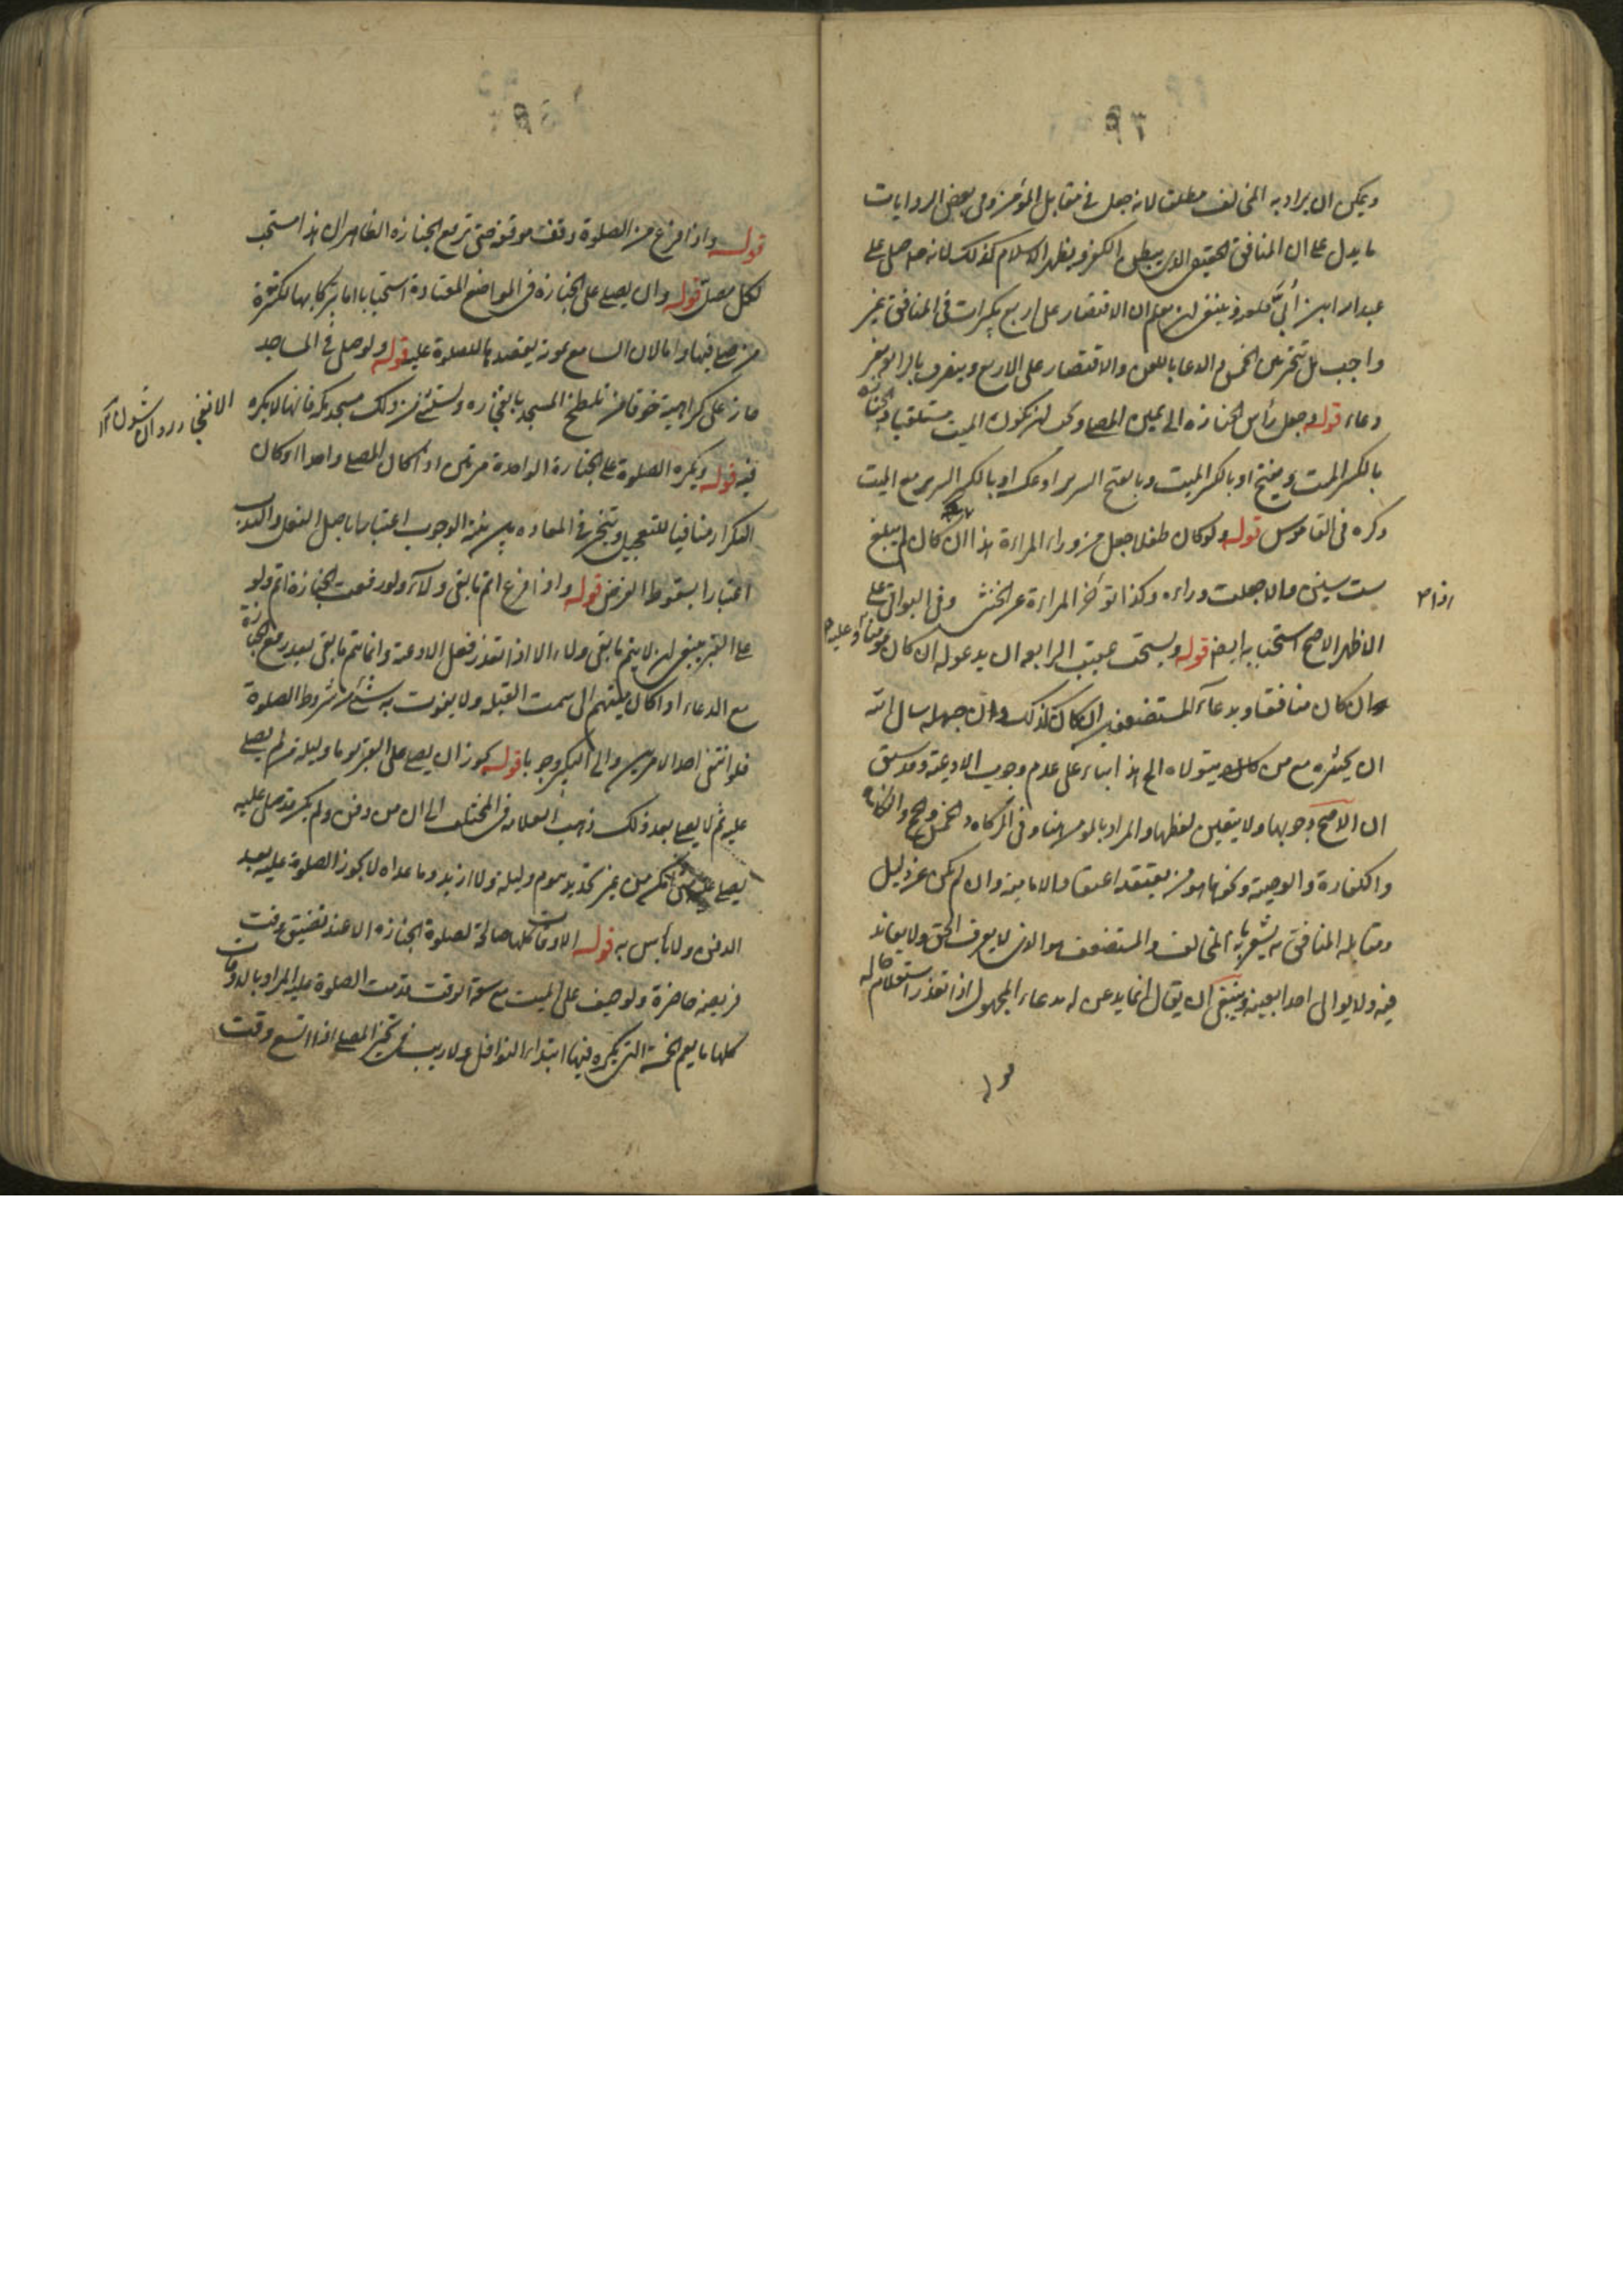 ٩٣
ويمكن ان يراد به المخالف مطلقا لانه جعل في مقابل المؤمن وفى بعض الروايات
ما يدل على ان المنافق الحقيقى الذى يبطن الكفر ويظهر الاسلام كذلك لانه صلى على
عبد الله ابن أبىّ فلعنه وينبغى ان يعلم ان الاقتصار على اربع تكبيرات فى المنافق غير
واجب بل يتخير بين الخمس والدعا باللعن والاقتصار على الاربع وينصرف بالرابعة بغير
دعاء قوله وجعل رأس الجنازة الى يمين المصلى وكذا يجب ان يكون الميت مستلقيا والجنازة
بالكسر الميت ويفتح او بالكسر الميت وبالفتح السرير او عكسه او بالكسر السرير مع الميت
ذكره فى القاموس قوله ولو كان طفلا جعل من وراء المراءة هذا ان كان لم يبلغ
ست سنين والا جعلت وراءه وكذا تؤخر المراءة عن الخنثى وفى البواقى على
اذا م
الاظهر الاصح استحبابه ايضا قوله ويستحب عقيب الرابعه ان يدعو له ان كان مؤمنا وعليه
ان كان منافقا وبدعاء المستضعفين ان كان كذلك وان جهله سال الله
ان يحشره مع من كان يتولاه الخ هذا بناء على عدم وجوب الادعية وقد سبق
ان الاصح وجوبها ولا يتعين لفظها والمراد بالمؤمن هنا وفى الزكاه والخمس والحج
والكفارة والوصية ونحوها هو من يعتقد اعتقاد الامامية وان لم يكن عن دليل
ومقابله المنافق يشعر بانه المخالف والمستضعف هو الذى لا يعرف الحق ولا يعاند
فيه ولا يوالى احدا بعينه وينبغى ان يقال انما يدعى له بدعاء المجهول اذا تعذر استعلام حاله
قوله واذا فرغ من الصلوة وقف موقفه حتى ترفع الجنازة الظاهر ان هذا مستحب
لكل مصل قوله وان يصلى على الجنازة فى المواضع المعتادة استحبابا اما تبركا بها لكثرة
من صلى فيها واما لان السامع بموته يقصدها للصلوة عليه قوله ولو صلى فى المساجد
جاز على كراهية خوفا من تلطخ المسجد بانفجاره ويستثنى من ذلك مسجد مكه فانها لا يكره
فيه قوله ويكره الصلوة على الجنازة الواحدة مرتين اذا كان المصلى واحدا او كان
التكرار منافيا للتعجيل ويتخير فى المعاده بين نية الوجوب اعتبارا باصل الفعل والندب
اعتبارا بسقوط الفرض قوله واذا فرغ اتم ما بقى ولاء ولو رفعت الجنازة اتم ولو
على القبر ينبغى ان لا يتم ما بقى ولاء الا اذا تعذر فعل الادعية وانما يتم ما بقى بعد رفع الجنازة
مع الدعاء اذا كان مشيهم الى سمت القبلة ولا يفوت به شئ من شروط الصلوة
فلو انتفى احد الامرين والى التكبير وجوبا قوله يجوز ان يصلى على القبر يوما وليلة من لم يصلى
عليه ثم لا يصلى بعد ذلك ذهب العلامه فى المختلف الى ان من دفن ولم يكن قد صلى عليه
يصلى على من غير تحديد بيوم وليلة ولا ازيد وما عداه لا يجوز الصلوة عليه بعد
الدفن ولا باس به قوله الاوقات كلها صالحة لصلوة الجنازة الا عند تضيق وقت
فريضة حاضرة ولو خيف على الميت مع سعة الوقت قدمت الصلوة عليه المراد بالاوقات
كلها ما يعم الخمسة التى يكره فيها ابتداء النوافل ولا ريب فى تخير المصلى اذا اتسع وقت